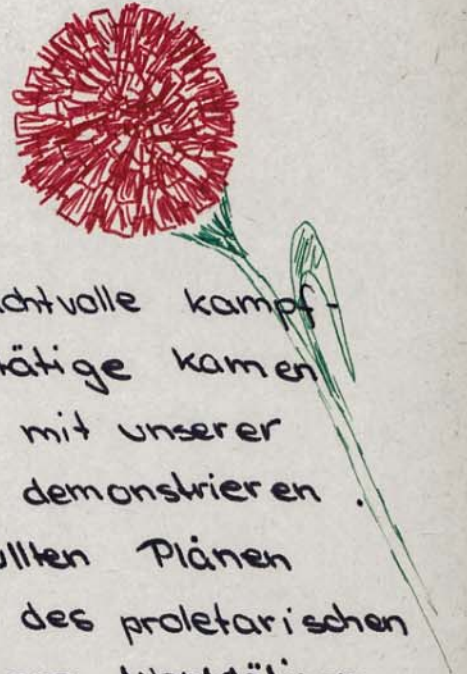 chtvolle kampf-
tätige kamen
mit unserer
demonstrieren.
llten Plänen
des proletarischen